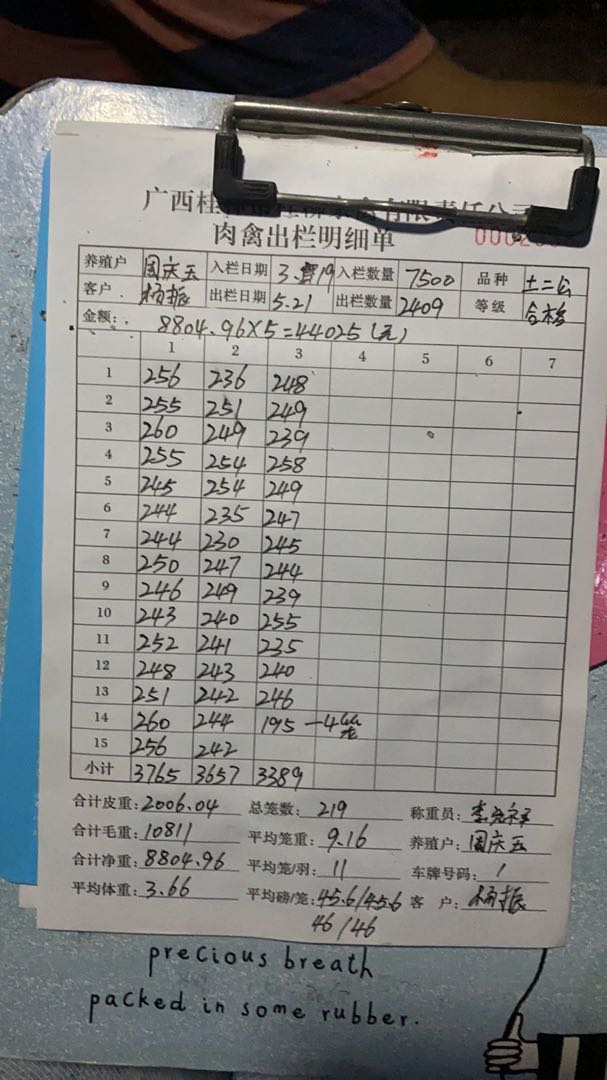 广西桂
有限责任公司
肉禽出栏明细单 0002
养殖户 周庆玉 入栏日期 3. 19 入栏数量 7500 品种 土二公
客户 杨振 出栏日期 5.21 出栏数量 2409 等级 合格
金额: 8804.96×5=44025(元)
1 2 3 4 5 6 7
1 256 236 248
2 255 251 249
3 260 249 239
4 255 254 258
5 245 254 249
6 244 235 247
7 244 230 245
8 250 247 244
9 246 249 239
10 243 240 255
11 252 241 235
12 248 243 240
13 251 242 246
14 260 244 195 -4
15 256 242
小计 3765 3657 3389
合计皮重: 2006.04 总笼数: 219 称重员:
合计毛重: 10811 平均笼重: 9.16 养殖户: 周庆玉
合计净重: 8804.96 平均笼/羽: 11 车牌号码: /
平均体重: 3.66 平均磅/笼: 45.6/45.6 客 户: 杨振
46/46
precious breath
packed in some rubber.